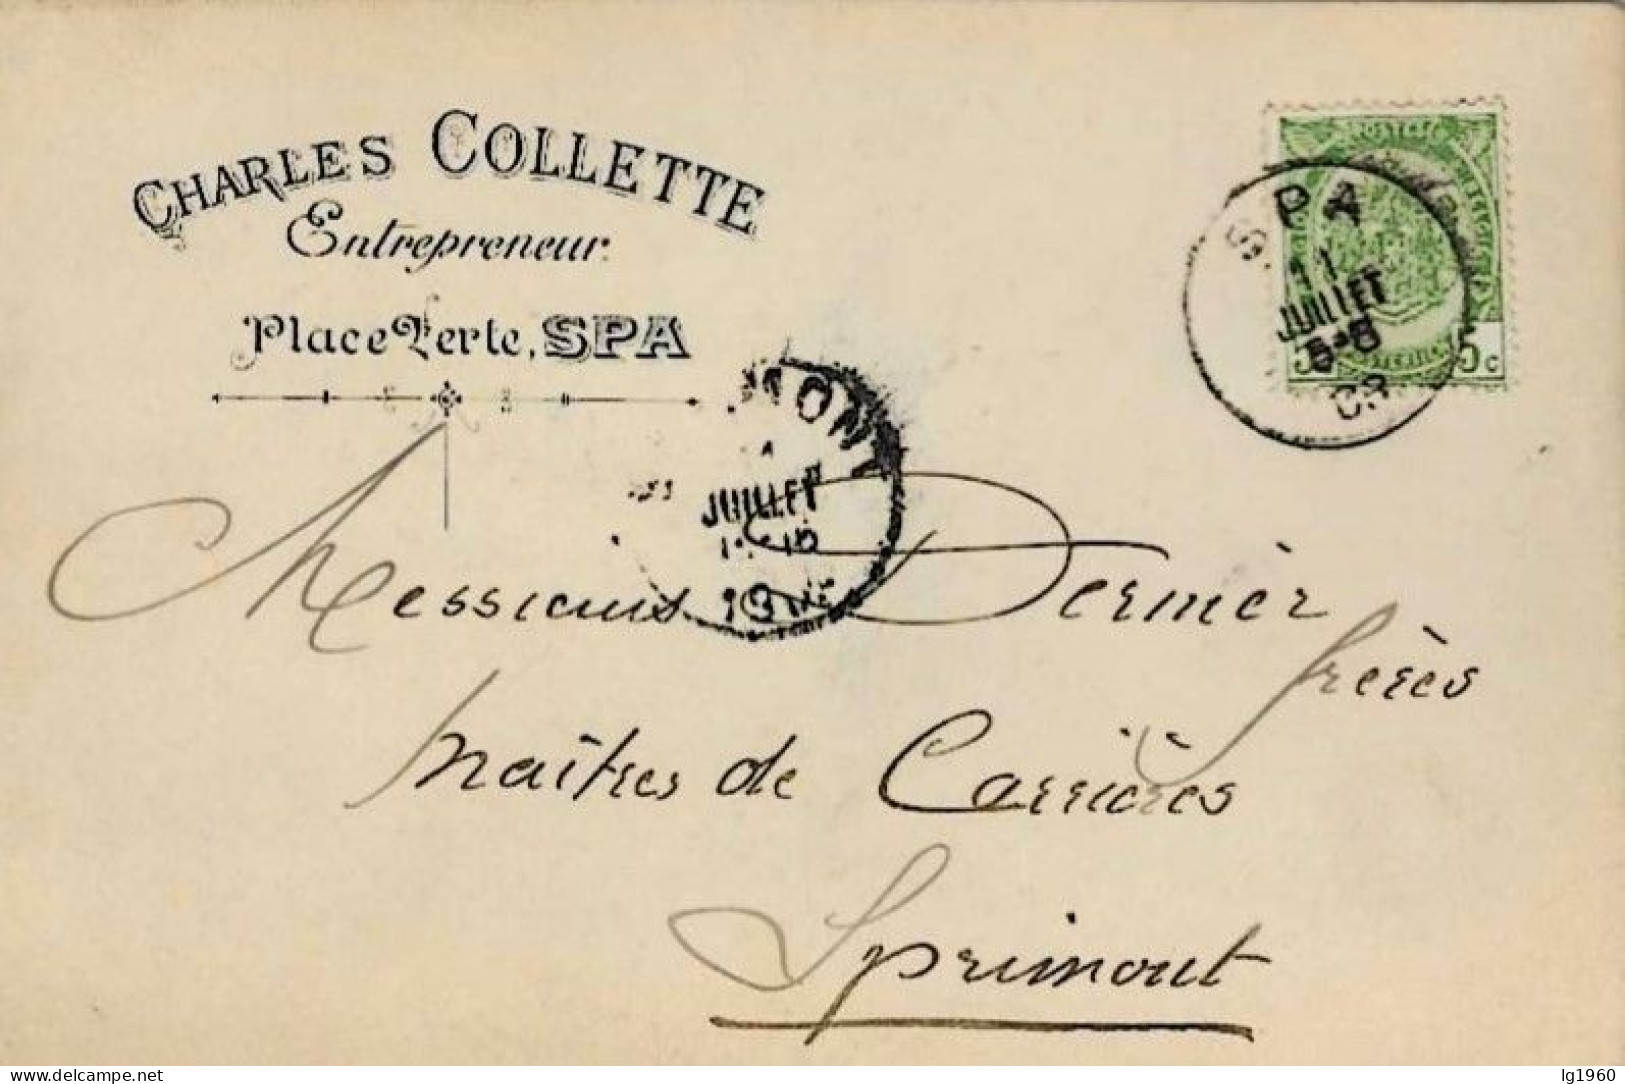 CHARLES COLLETTE
Entrepreneur.
Place Verte, SPA
SPA
11
JUILLET
5-6
5c
MONT
JUILLET
Messieurs Dernier
frères
Maîtres de Carrières
Sprimont
delcampe.net
lg1960